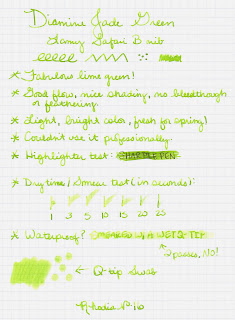 Diamine Jade Green
Lamy Safari B nib
* Fabulous lime green!
* Good flow, nice shading, no bleedthrough
or feathering.
* Light, bright color, fresh for spring!
* Couldn't use it professionally.
* Highlighter test: SHARPIE PEN
* Drytime/Smear test (in seconds):
1 3 5 10 15 20 25
* Waterproof? SMEARED W/ A WET Q-TIP
2 passes. NO!
← Q-tip Swab
Rhodia